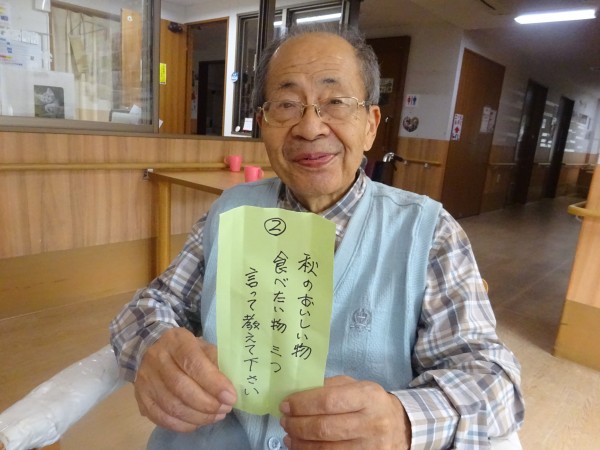 ②
秋のおいしい物
食べたい物 三つ
言って教えて下さい